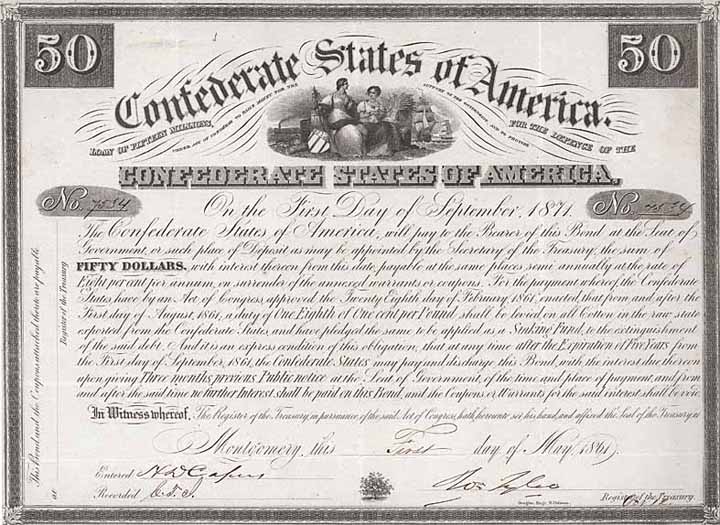 50
50
Confederate States of America.
LOAN OF FIFTEEN MILLIONS,
UNDER ACT OF CONGRESS TO RAISE MONEY FOR THE
SUPPORT OF THE GOVERNMENT AND TO PROVIDE
FOR THE DEFENCE OF THE
CONFEDERATE STATES OF AMERICA,
No. 7534
No.
On the First Day of September, 1871.
The Confederate States of America, will pay to the Bearer of this Bond at the Seat of
Government, or such place of Deposit as may be appointed by the Secretary of the Treasury, the sum of
FIFTY DOLLARS, with interest thereon from this date, payable at the same places semi annually at the rate of
Eight per cent per annum, on surrender of the annexed warrants or coupons. For the payment whereof the Confederate
States have by an Act of Congress, approved the Twenty Eighth day of February 1861, enacted, that from and after the
First day of August, 1861, a duty of One Eighth of One cent per Pound shall be levied on all Cotton in the raw state
exported from the Confederate States, and have pledged the same to be applied as a Sinking Fund, to the extinguishment
of the said debt. And it is an express condition of this obligation, that at any time after the Expiration of Five Years from
the First day of September, 1861, the Confederate States may pay and discharge this Bond, with the interest due thereon
upon giving Three months previous Public notice at the Seat of Government, of the time and place of payment, and from
and after the said time no further Interest shall be paid on this Bond, and the Coupons or Warrants for the said interest shall be void.
In Witness whereof, The Register of the Treasury, in pursuance of the said Act of Congress, hath hereunto set his hand, and affixed the Seal of the Treasury, at
Montgomery, this First day of May, 1861.
Entered
Recorded
Register of the Treasury
This Bond and the Coupons attached thereto are payable
at
Register of the Treasury